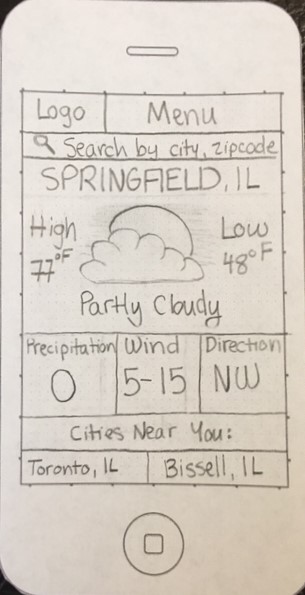 Logo Menu
Search by city, zipcode
SPRINGFIELD, IL
High Low
77°F 48°F
Partly Cloudy
Precipitation Wind Direction
0 5-15 NW
Cities Near You:
Toronto, IL Bissell, IL